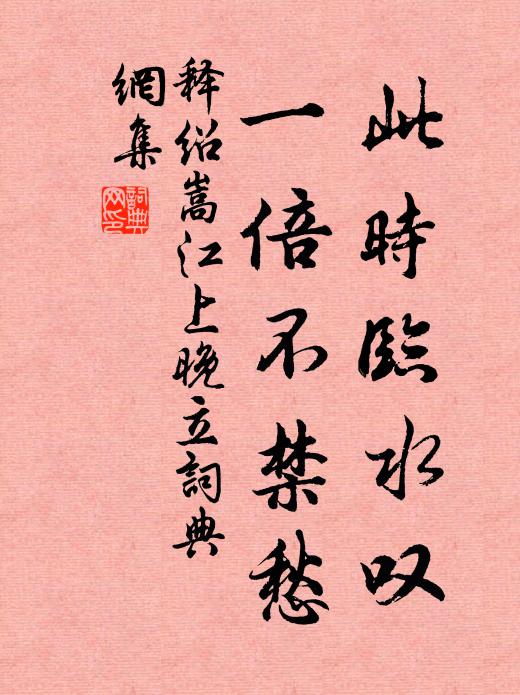 此時臨水叹
一倍不禁愁
释绍嵩江上晚立詞典
網集
詞典
网印